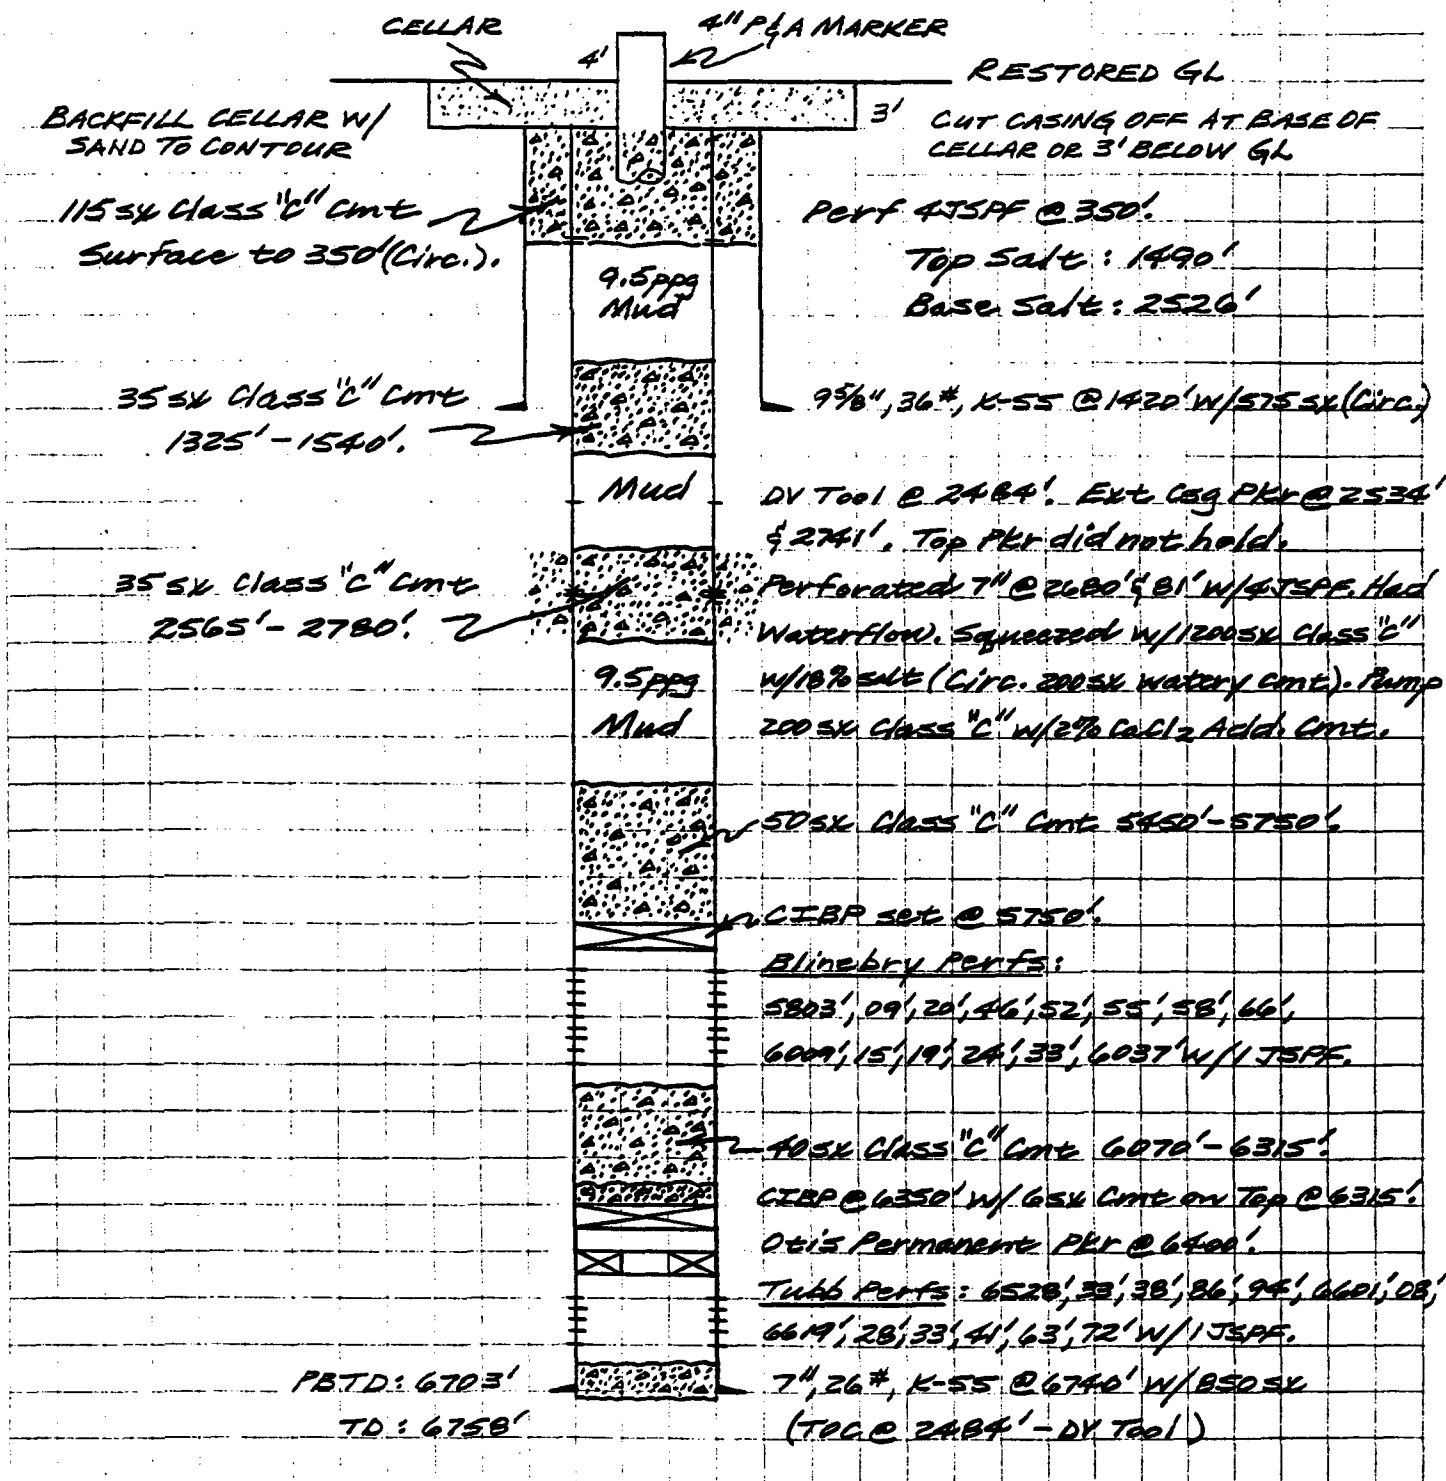 CELLAR
4" P&A MARKER
4'
RESTORED GL
BACKFILL CELLAR W/
SAND TO CONTOUR
3'
CUT CASING OFF AT BASE OF
CELLAR OR 3' BELOW GL
115 sx Class "C" Cmt
Surface to 350' (Circ.).
Perf 4JSPF @ 350'.
Top Salt: 1490'
Base Salt: 2526'
9.5ppg
Mud
35 sx Class "C" Cmt
1325' - 1540'.
9 5/8", 36#, K-55 @ 1420' w/575 sx (Circ.)
Mud
DV Tool @ 2484'. Ext Csg Pkr @ 2534'
& 2741'. Top Pkr did not hold.
35 sx Class "C" Cmt
2565' - 2780'.
Perforated 7" @ 2680' & 81' w/4 JSPF. Had
Waterflow. Squeezed w/1200 sx Class "C"
w/18% salt (Circ. 200 sx watery cmt). Pump
200 sx Class "C" w/2% CaCl2 Add. Cmt.
9.5ppg
Mud
50 sx Class "C" Cmt 5450' - 5750'.
CIBP set @ 5750'.
Blinebry Perfs:
5803', 09', 20', 46', 52', 55', 58', 66',
6009', 15', 19', 24', 33', 6037' w/1 JSPF.
40 sx Class "C" Cmt 6070' - 6315'.
CIBP @ 6350' w/ 6sx Cmt on Top @ 6315'.
Otis Permanent Pkr @ 6400'.
Tubb Perfs: 6528', 33', 38', 86', 94', 6601', 08',
6619', 28', 33', 41', 63', 72' w/1 JSPF.
PBTD: 6703'
TD: 6758'
7", 26#, K-55 @ 6740' w/850 sx
(TOC @ 2484' - DV Tool)